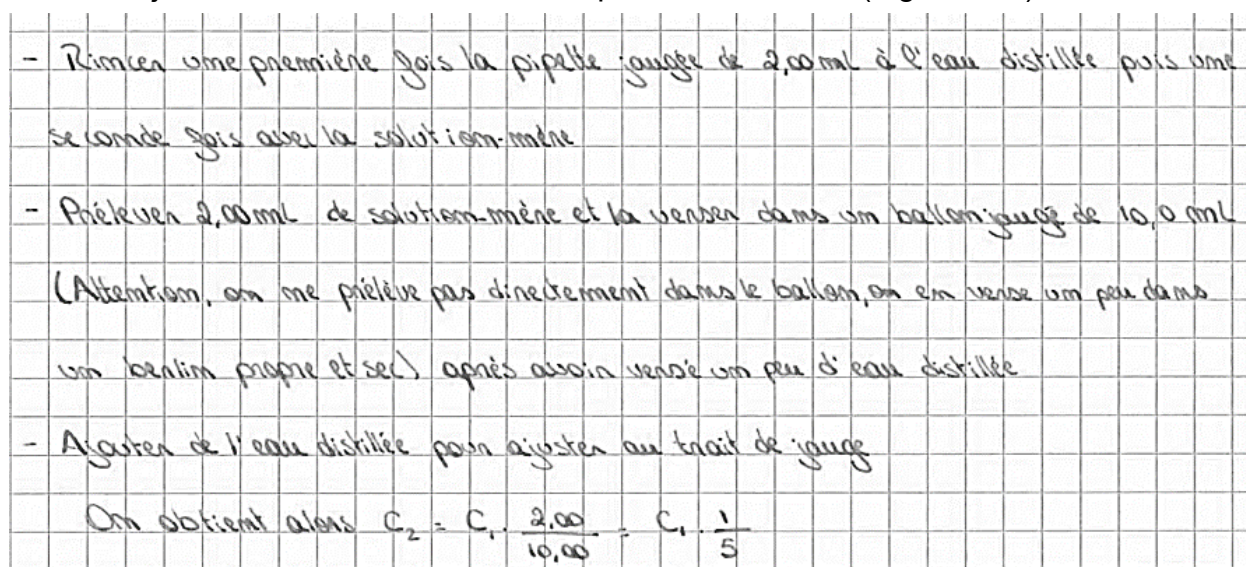 - Rincer une première fois la pipette jaugée de 2,00 mL à l'eau distillée puis une
seconde fois avec la solution-mère
- Prélever 2,00 mL de solution-mère et la verser dans un ballon jaugé de 10,0 mL
(Attention, on ne prélève pas directement dans le ballon, on en verse un peu dans
un berlin propre et sec) après avoir versé un peu d'eau distillée
- Ajouter de l'eau distillée pour ajuster au trait de jauge
On obtient alors C₂ = C₁ · 2,00/10,00 = C₁ · 1/5